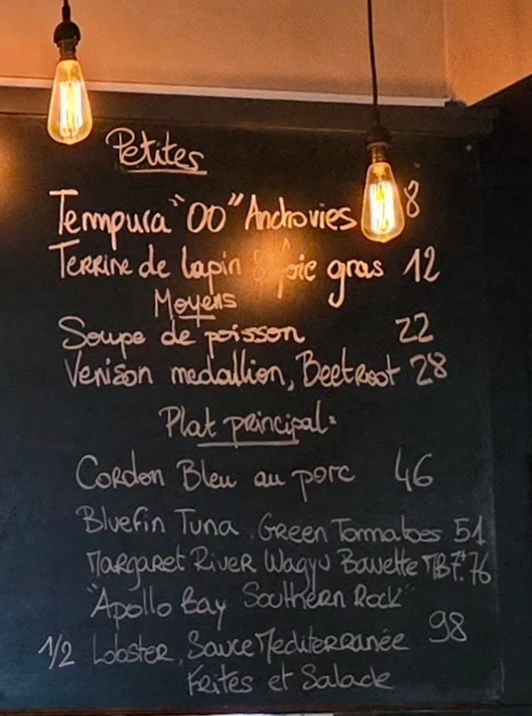 Petites
Tempura "OO" Anchovies 8
Terrine de lapin & foie gras 12
Moyens
Soupe de poisson 22
Venison medallion, Beetroot 28
Plat principal:
Cordon Bleu au porc 46
Bluefin Tuna, Green Tomatoes 51
Margaret River Wagyu Bavette MB7+ 76
"Apollo Bay Southern Rock"
1/2 Lobster, Sauce Mediterranée 98
Frites et Salade